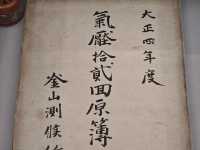 大正四年度
氣壓拾貳回原簿
釜山測候